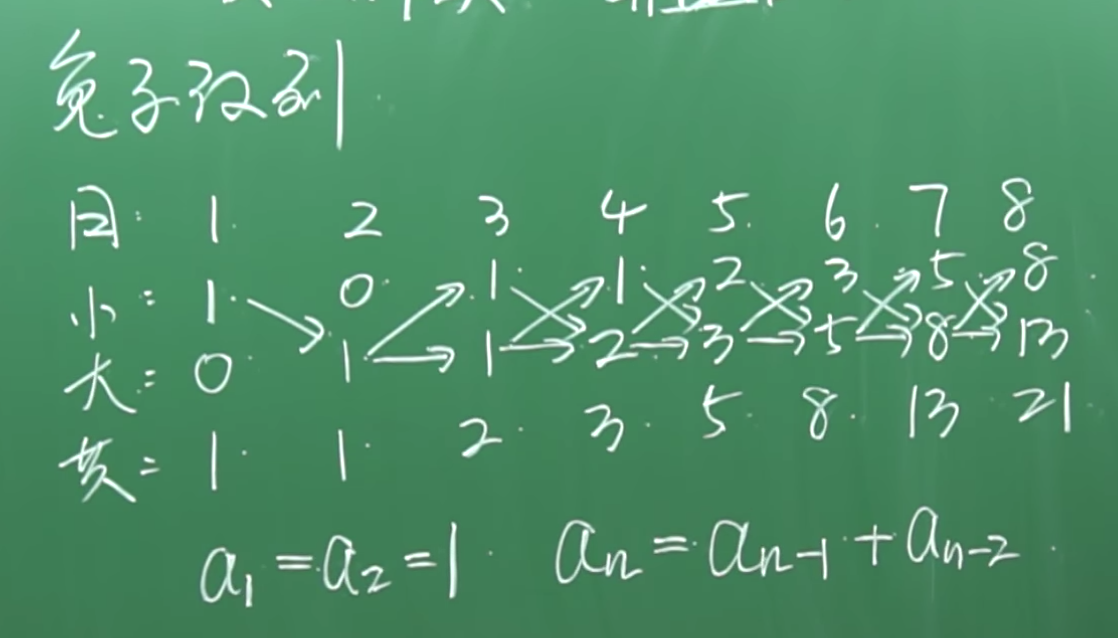 兔子数列
月: 1 2 3 4 5 6 7 8
小: 1 0 1 1 2 3 5 8
大: 0 1 1 2 3 5 8 13
共: 1 1 2 3 5 8 13 21
a₁=a₂=1 aₙ=aₙ₋₁+aₙ₋₂